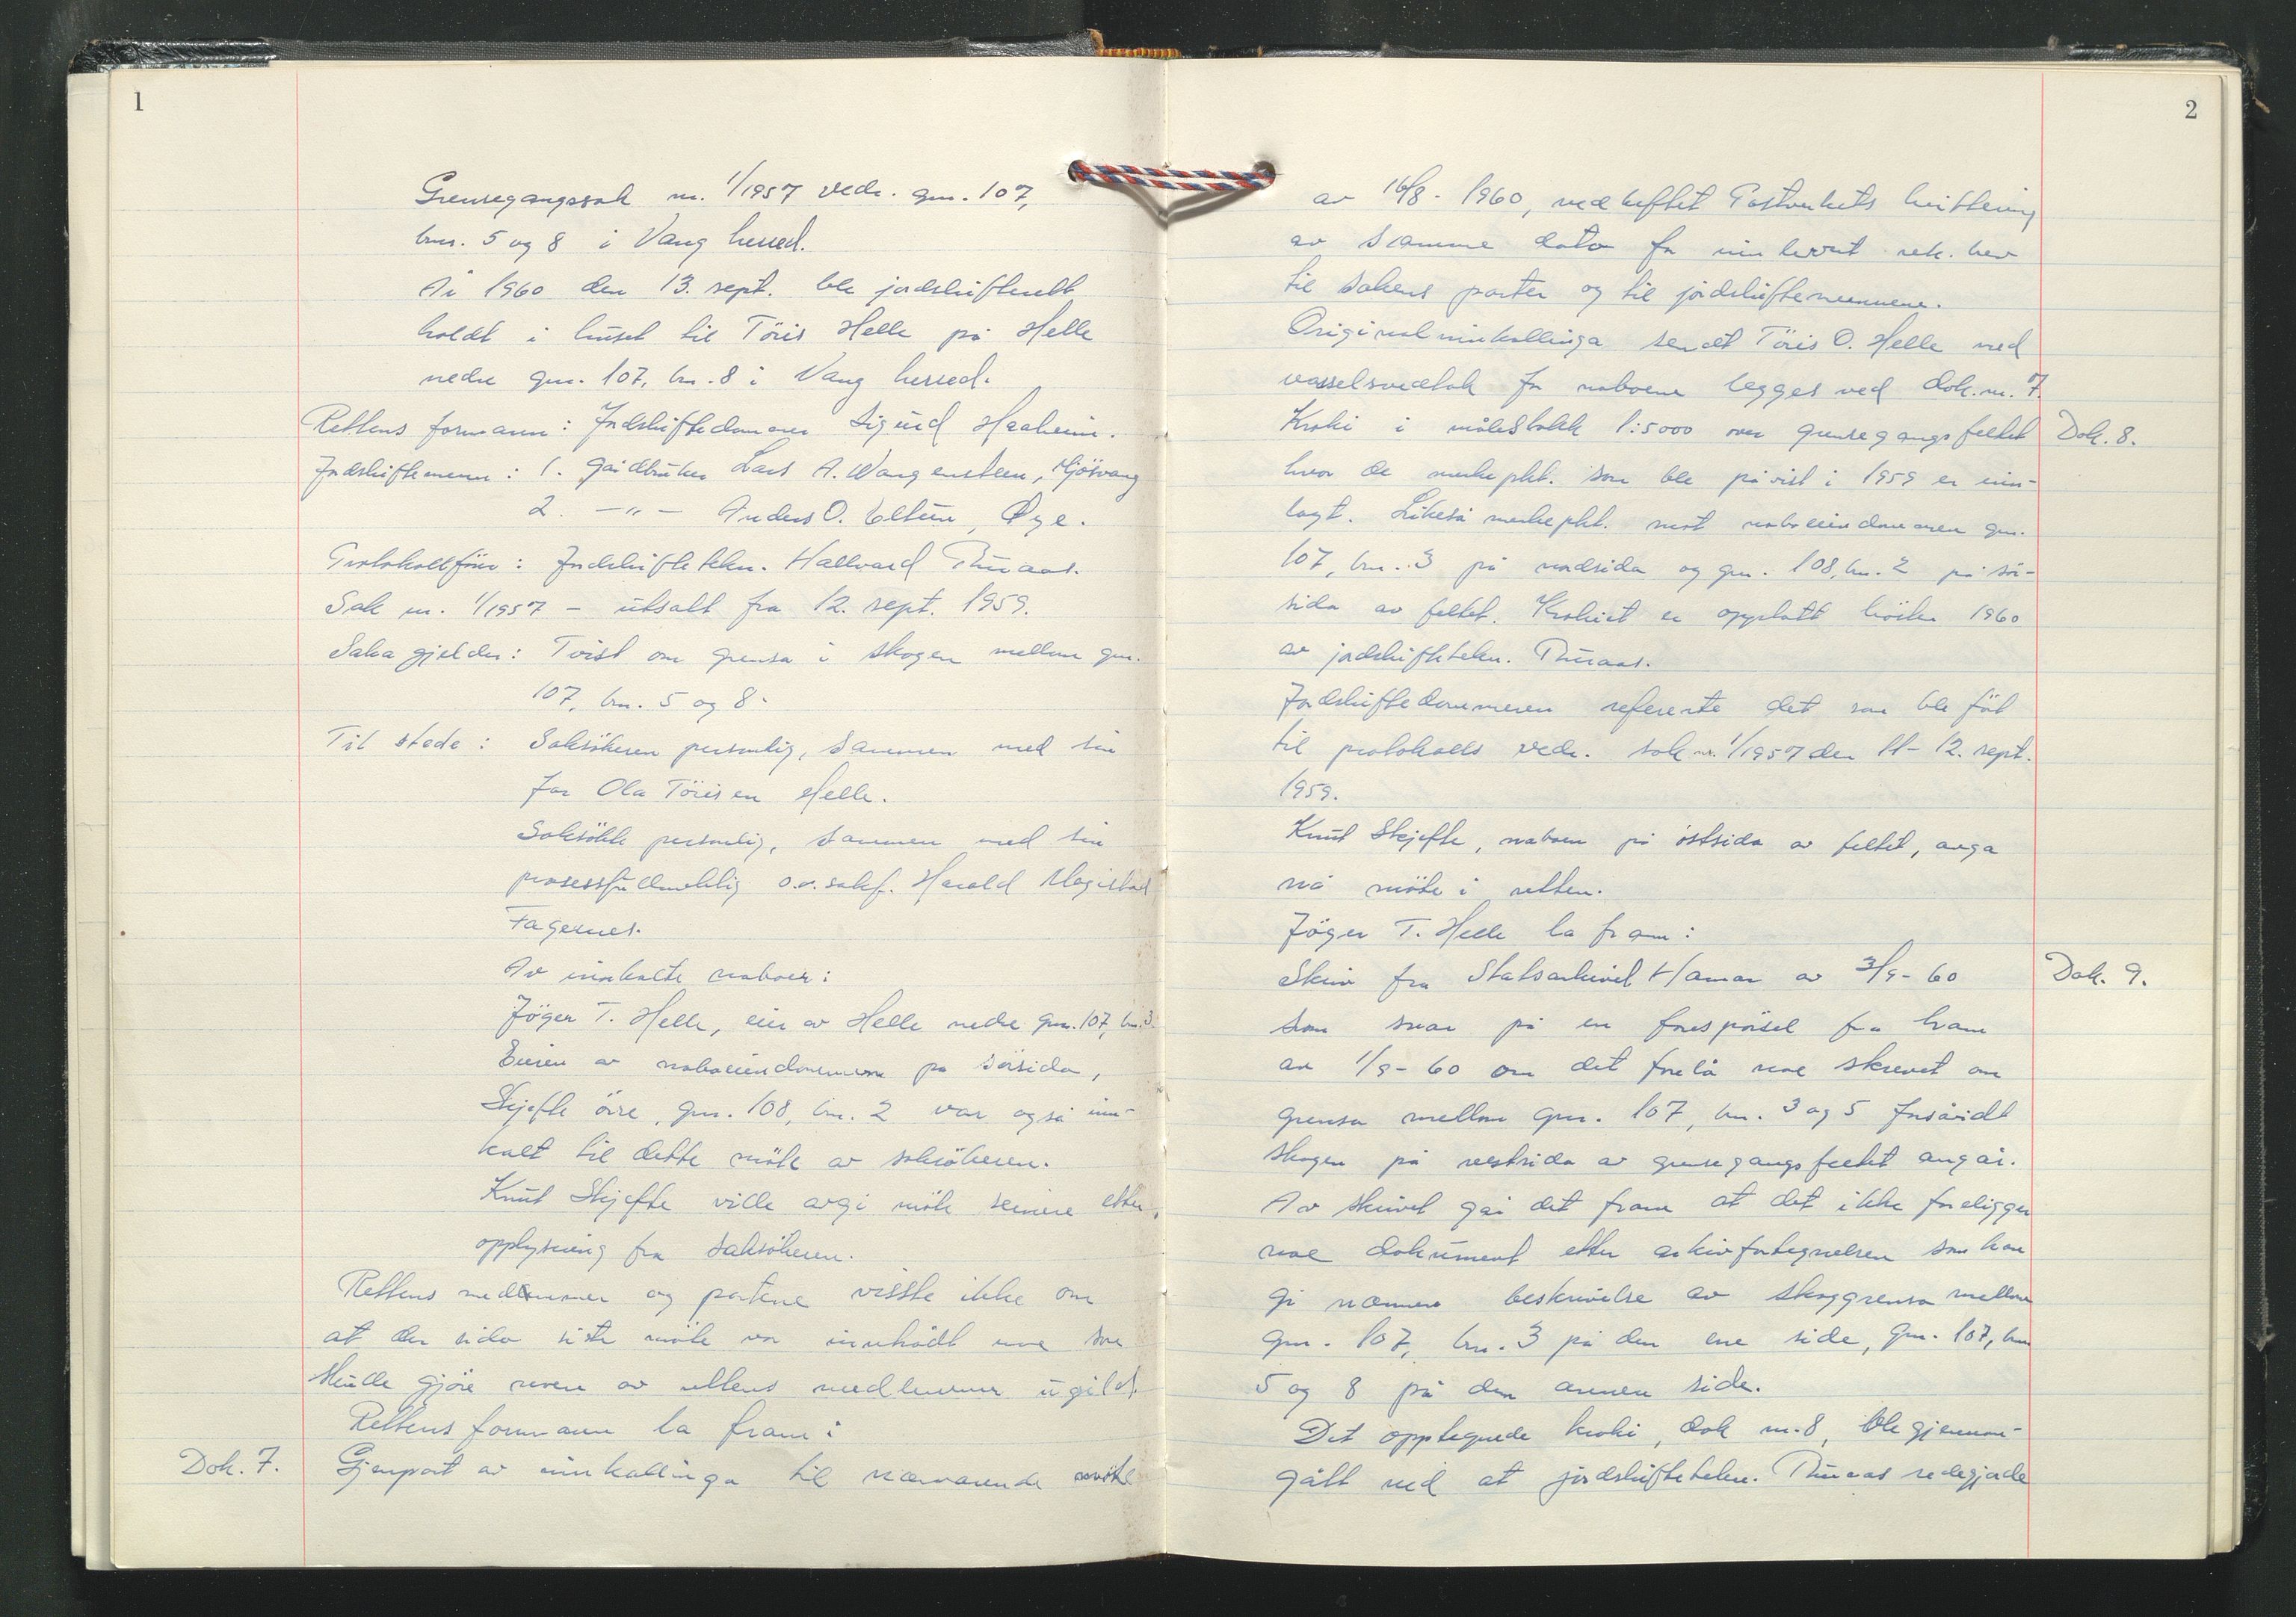 1
Grensegangssak nr. 1/1957 vedr. gnr. 107,
bnr. 5 og 8 i Vang herred.
År 1960 den 13. sept. ble jordskifterett
holdt i huset til Töris Helle på Helle
nedre gnr. 107, bnr. 8 i Vang herred.
Rettens formann: Jordskiftedommer Sigurd Haaheim.
Jordskiftemenn: 1. Gårdbruker Lars A. Wangensteen, Mjösvang
2. -"- Anders O. Eltun, Øye.
Protokollförer: Jordskiftetekn. Hallvard Thuaas.
Sak nr. 1/1957 - utsatt fra 12. sept. 1959.
Saka gjelder: Tvist om grensa i skogen mellom gnr.
107, bnr. 5 og 8.
Til stede: Saksökeren personlig, sammen med sin
far Ola Törisen Helle.
Saksökte personlig, sammen med sin
prosessfullmektig o.r.sakf. Harald Magistad
Fagernes.
Av innkalte naboer:
Jöger T. Helle, eier av Helle nedre gnr. 107, bnr. 3.
Eieren av naboeiendommen på sörsida,
Skjefte övre, gnr. 108, bnr. 2 var også inn-
kalt til dette möte av saksökeren.
Knut Skjefte ville avgi möte seinere etter
opplysning fra saksökeren.
Rettens medlemmer og partene visste ikke om
at der siden siste möte var inntrådt noe som
skulle gjöre noen av rettens medlemmer ugild.
Rettens formann la fram:
Dok. 7. Gjenpart av innkallinga til nærværende möte
2
av 16/8 - 1960, vedheftet Postverkets kvittering
av samme dato for innlevert rek. brev
til sakens parter og til jordskiftemennene.
Originalinnkallinga sendt Töris O. Helle med
varselsvedtak for naboene legges ved dok. nr. 7.
Kroki i målestokk 1:5000 over grensegangsfeltet Dok. 8.
hvor de merkepkt. som ble påvist i 1959 er inn-
lagt. Likeså merkepkt. mot naboeiendommen gnr.
107, bnr. 3 på nordsida og gnr. 108, bnr. 2 på sör-
sida av feltet. Krokiet er opptatt hösten 1960
av jordskiftetekn. Thuaas.
Jordskiftedommeren refererte det som ble fört
til protokolls vedr. sak nr. 1/1957 den 11-12. sept.
1959.
Knut Skjefte, naboen på östsida av feltet, avga
nå möte i retten.
Jöger T. Helle la fram:
Skriv fra Statsarkivet Hamar av 3/9-60 Dok. 9.
som svar på en forespörsel fra ham
av 1/9-60 om det forelå noe skrevet om
grensa mellom gnr. 107, bnr. 3 og 5 forsåvidt
skogen på vestsida av grensegangsfeltet angår.
Av skrivet går det fram at det ikke foreligger
noe dokument etter arkivfortegnelsen som kan
gi nærmere beskrivelse av skoggrensa mellom
gnr. 107, bnr. 3 på den ene side, gnr. 107, bnr.
5 og 8 på den annen side.
Det opptegnede kroki, dok nr. 8, ble gjennom-
gått ved at jordskiftetekn. Thuaas redegjorde